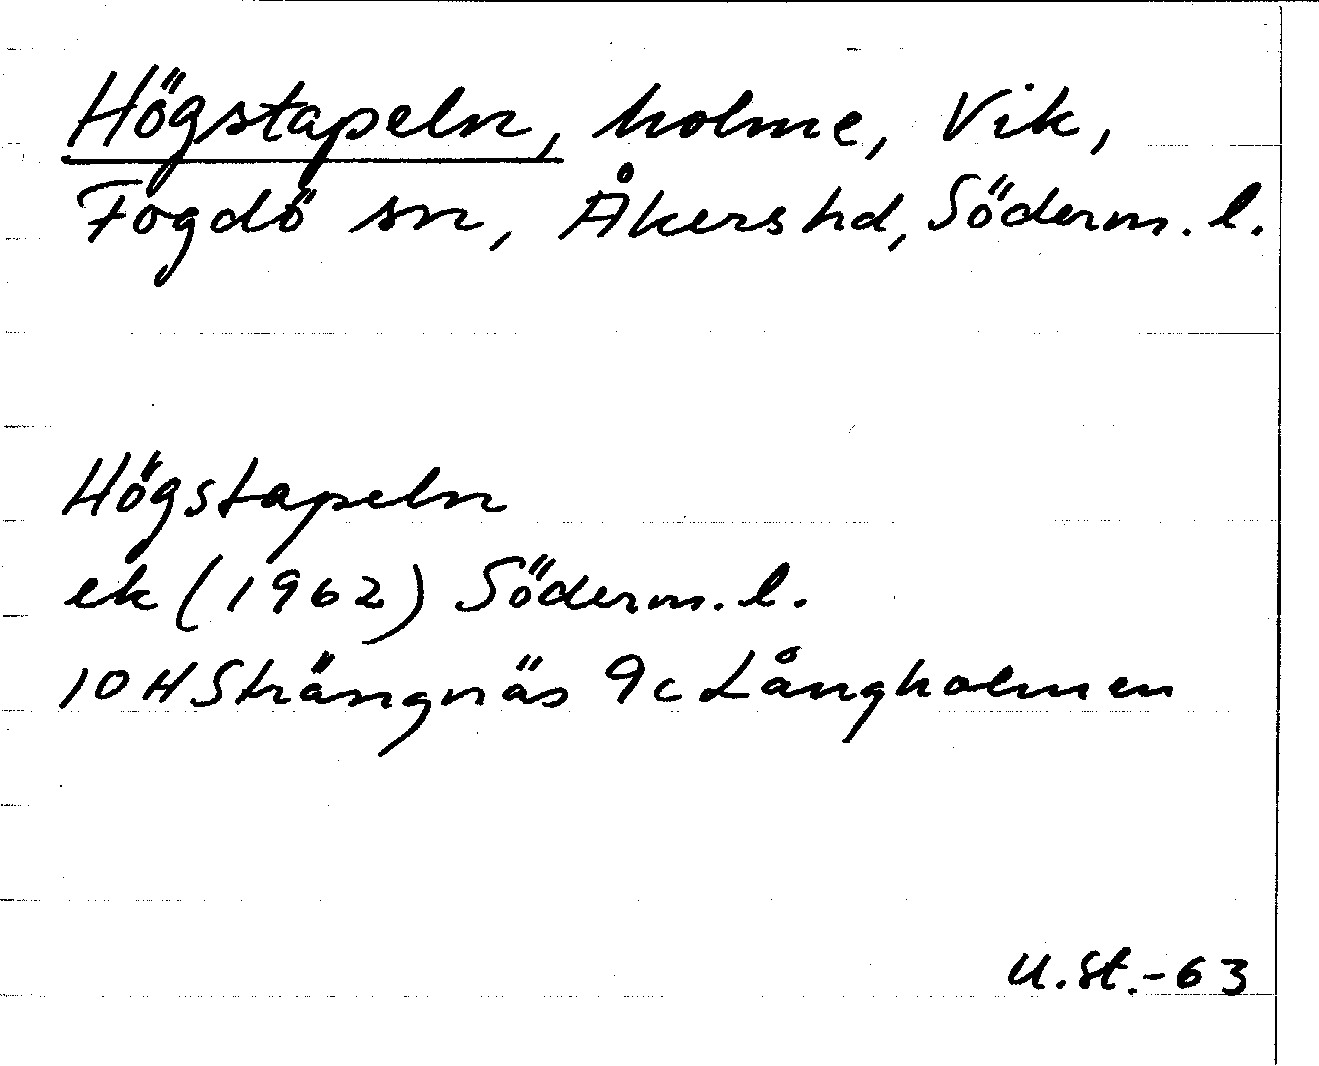 Högstapeln, holme, Vik,
Fogdö sn, Åkers hd, Söderm. l.
Högstapeln
ek (1962) Söderm. l.
10 H Strängnäs 9c Långholmen
U.St.-63